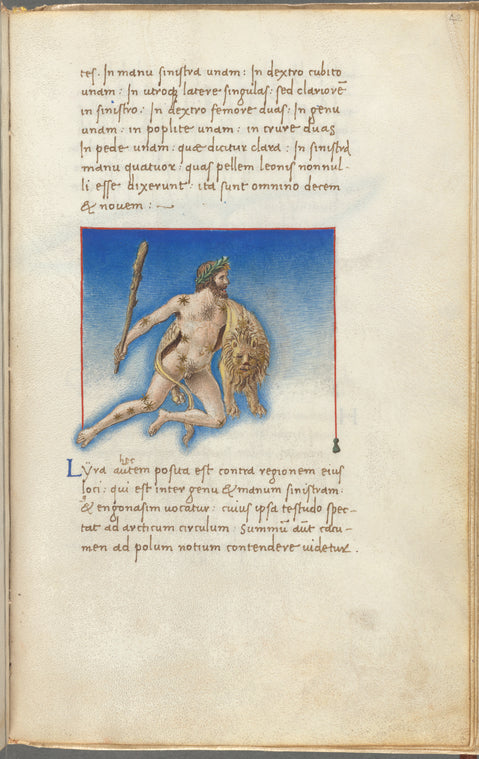 tes. In manu sinistra unam: In dextro cubito
unam: In utroq; latere singulas: sed clariorē
in sinistro: In dextro femore duas: In genu
unam: in poplite unam: in crure duas
In pede unam: quæ dicitur clara: In sinistra
manu quatuor: quas pellem leonis nonnul-
li esse dixerunt: ita sunt omnino decem
& novem: ~
Lÿra autem hec posita est contra regionem eius
loci: qui est inter genu & manum sinistram:
& engonasim uocatur: cuius ipsa testudo spec-
tat ad arcticum circulum: Summū aūt cacu-
men ad polum notium contendere uidetur.